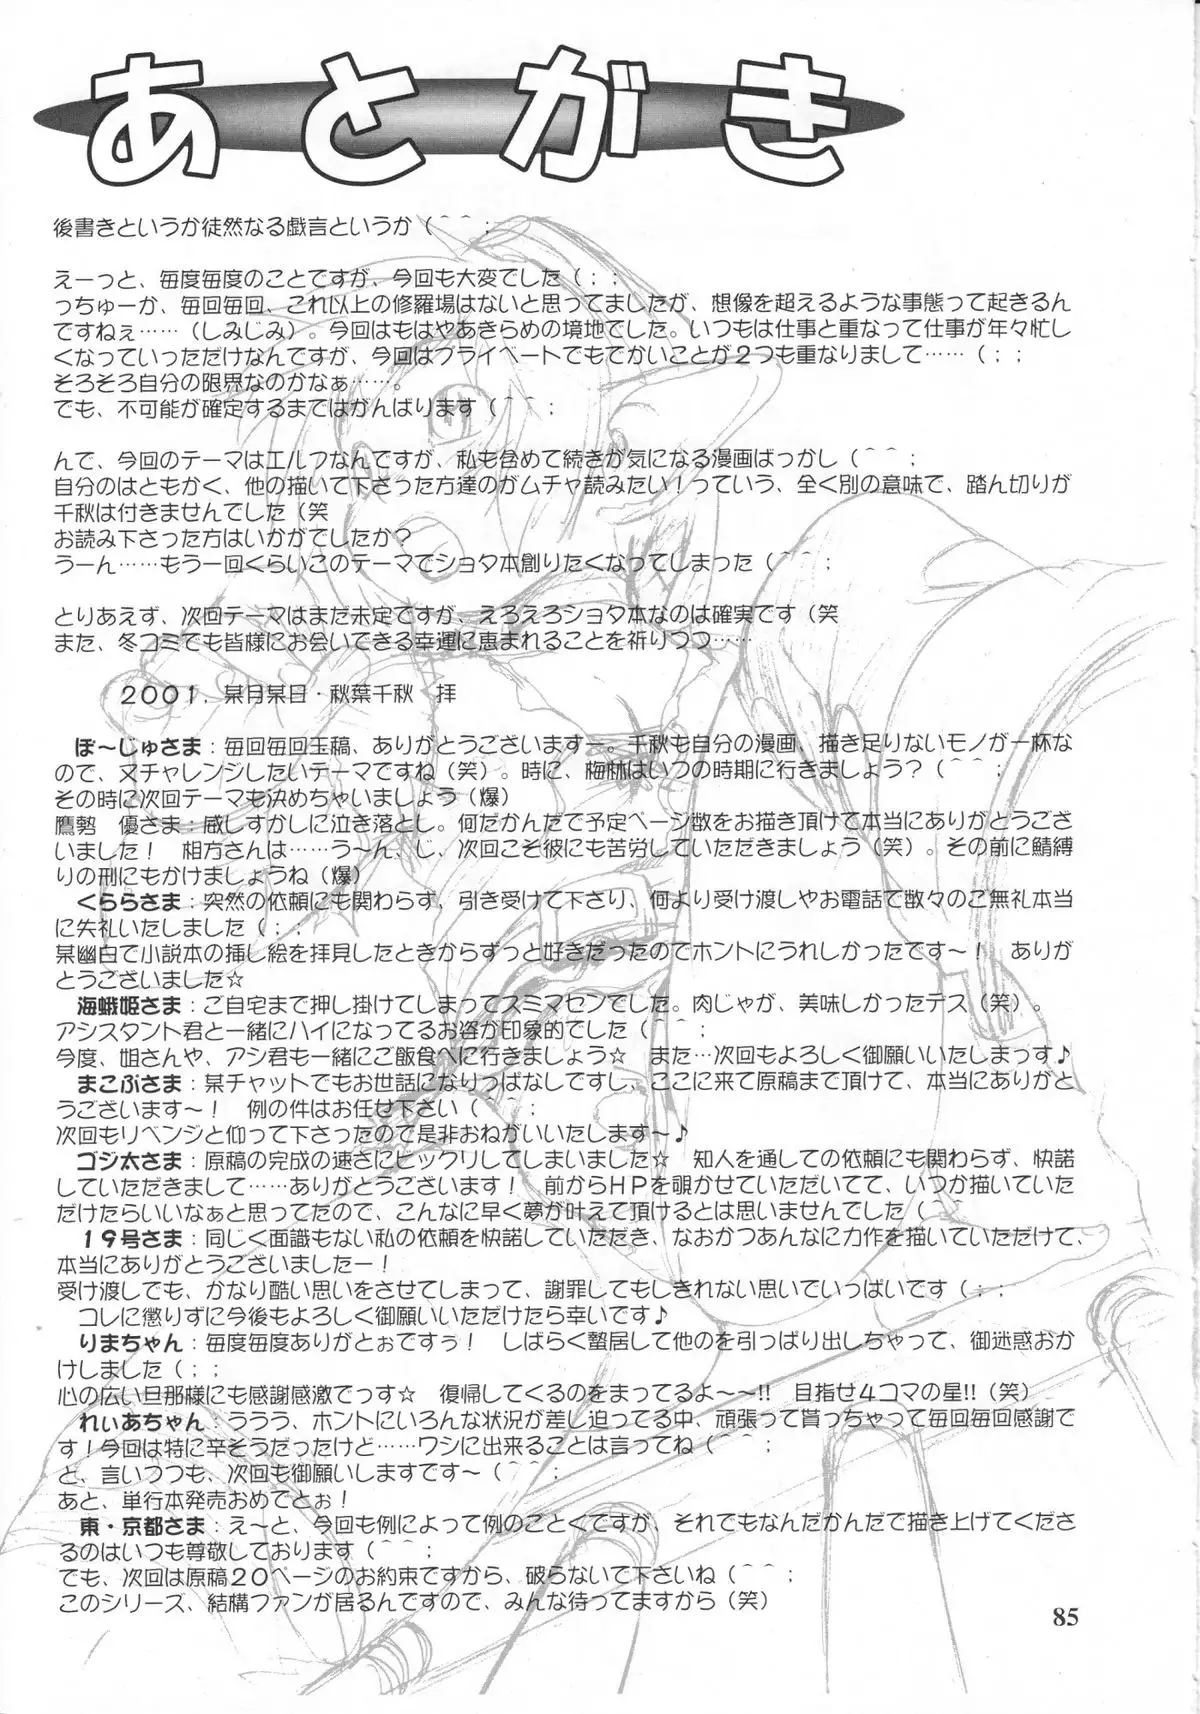 あとがき
後書きというか徒然なる戯言というか（＾＾；
えーっと、毎度毎度のことですが、今回も大変でした（；；
っちゅーか、毎回毎回、これ以上の修羅場はないと思ってましたが、想像を超えるような事態って起きるん
ですねぇ……（しみじみ）。今回はもはやあきらめの境地でした。いつもは仕事と重なって仕事が年々忙し
くなっていっただけなんですが、今回はプライベートでもでかいことが２つも重なりまして……（；；
そろそろ自分の限界なのかなぁ……。
でも、不可能が確定するまではがんばります（＾＾；
んで、今回のテーマはエルフなんですが、私も含めて続きが気になる漫画ばっかし（＾＾；
自分のはともかく、他の描いて下さった方達のがムチャ読みたい！っていう、全く別の意味で、踏ん切りが
千秋は付きませんでした（笑
お読み下さった方はいかがでしたか？
うーん……もう一回くらいこのテーマでショタ本創りたくなってしまった（＾＾；
とりあえず、次回テーマはまだ未定ですが、えろえろショタ本なのは確実です（笑
また、冬コミでも皆様にお会いできる幸運に恵まれることを祈りつつ……
２００１．某月某日・秋葉千秋　拝
ぼ～じゅさま：毎回毎回玉稿、ありがとうございますー。千秋も自分の漫画、描き足りないモノが一杯な
ので、又チャレンジしたいテーマですね（笑）。時に、梅林はいつの時期に行きましょう？（＾＾；
その時に次回テーマも決めちゃいましょう（爆）
鷹勢　優さま：威しすかしに泣き落とし。何だかんだで予定ページ数をお描き頂けて本当にありがとうござ
いました！　相方さんは……う～ん、じ、次回こそ彼にも苦労していただきましょう（笑）。その前に鯖縛
りの刑にもかけましょうね（爆）
くららさま：突然の依頼にも関わらず、引き受けて下さり、何より受け渡しやお電話で数々のご無礼本当
に失礼いたしました（；；
某幽白で小説本の挿し絵を拝見したときからずっと好きだったのでホントにうれしかったです～！　ありが
とうございました☆
海蛾姫さま：ご自宅まで押し掛けてしまってスミマセンでした。肉じゃが、美味しかったデス（笑）。
アシスタント君と一緒にハイになってるお姿が印象的でした（＾＾；
今度、姐さんや、アシ君も一緒にご飯食べに行きましょう☆　また…次回もよろしく御願いいたしまっす♪
まこぷさま：某チャットでもお世話になりっぱなしですし、ここに来て原稿まで頂けて、本当にありがと
うございます～！　例の件はお任せ下さい（＾＾；
次回もリベンジと仰って下さったので是非おねがいいたします～♪
ゴジ太さま：原稿の完成の速さにビックリしてしまいました☆　知人を通しての依頼にも関わらず、快諾
していただきまして……ありがとうございます！　前からＨＰを覗かせていただいてて、いつか描いていた
だけたらいいなぁと思ってたので、こんなに早く夢が叶えて頂けるとは思いませんでした（＾＾
１９号さま：同じく面識もない私の依頼を快諾していただき、なおかつあんなに力作を描いていただけて、
本当にありがとうございましたー！
受け渡しでも、かなり酷い思いをさせてしまって、謝罪してもしきれない思いでいっぱいです（；；
コレに懲りずに今後もよろしく御願いいただけたら幸いです♪
りまちゃん：毎度毎度ありがとぉですぅ！　しばらく蟄居して他のを引っぱり出しちゃって、御迷惑おか
けしました（；；
心の広い旦那様にも感謝感激でっす☆　復帰してくるのをまってるよ～～!!　目指せ４コマの星!!（笑）
れぃあちゃん：ううう、ホントにいろんな状況が差し迫ってる中、頑張って貰っちゃって毎回毎回感謝で
す！今回は特に辛そうだったけど……ワシに出来ることは言ってね（＾＾；
と、言いつつも、次回も御願いしますです～（＾＾；
あと、単行本発売おめでとぉ！
東・京都さま：えーと、今回も例によって例のごとくですが、それでもなんだかんだで描き上げてくださ
るのはいつも尊敬しております（＾＾；
でも、次回は原稿２０ページのお約束ですから、破らないで下さいね（＾＾；
このシリーズ、結構ファンが居るんですので、みんな待ってますから（笑）
85